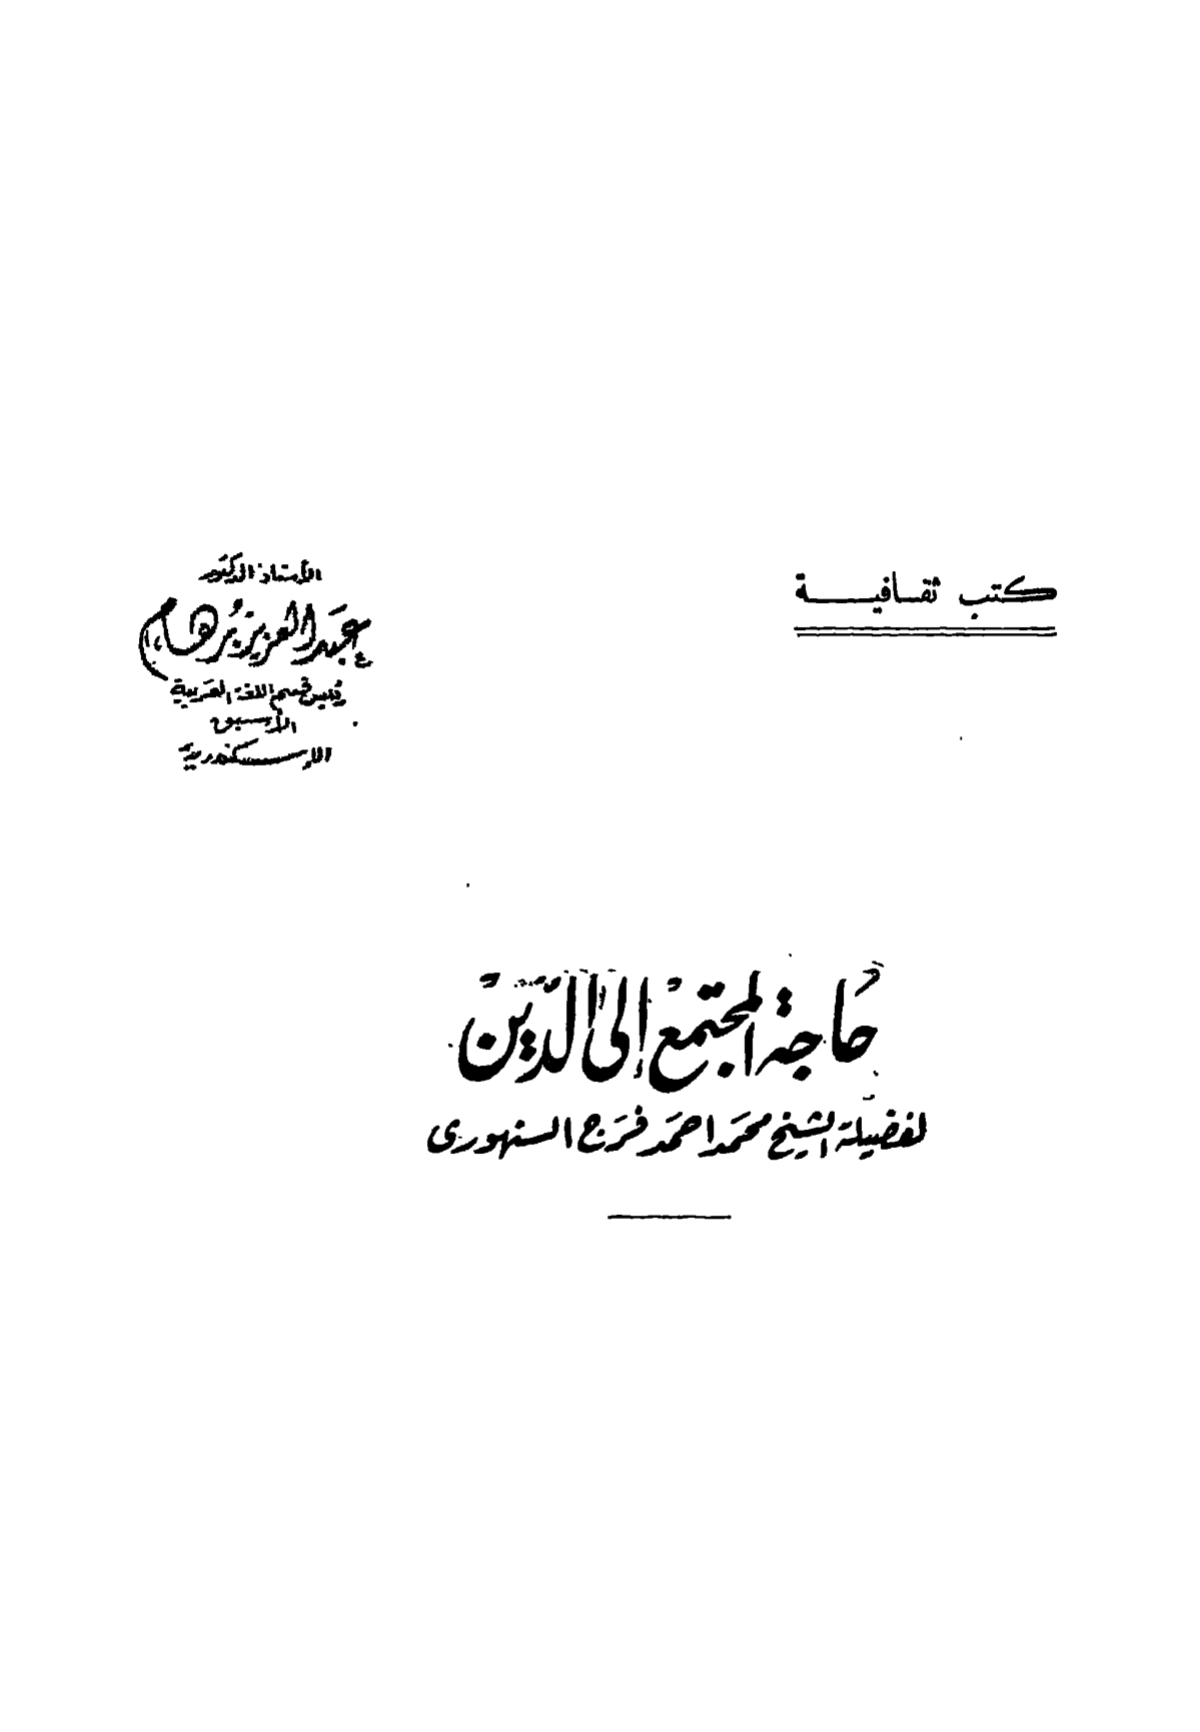 كتب ثقافية
الأستاذ الدكتور
عبد العزيز برهام
رئيس قسم اللغة العربية
الأسبق
الإسكندرية
حاجة المجتمع إلى الدين
لفضيلة الشيخ محمد احمد فرج السنهورى